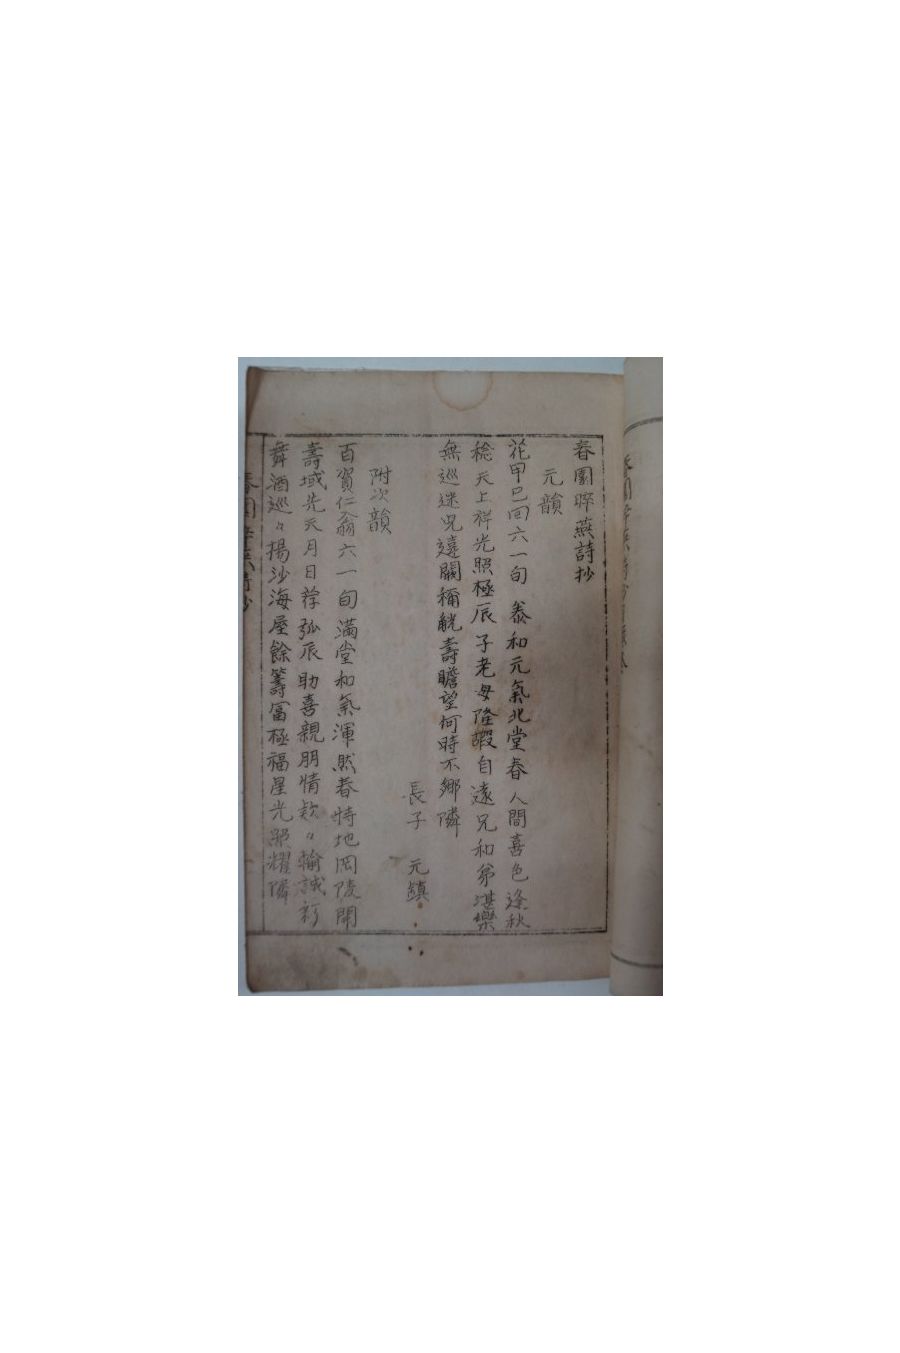 春園晬燕詩抄
元韻
花甲已回六一旬 泰和元氣北堂春 人間喜色逢秋
稔 天上祥光照極辰 子老母隆嘏自遠 兄和弟湛樂
無巡 迷兄遠闕稱觥壽 瞻望何時不鄉隣
長子 元鎮
附次韻
百賀仁翁六一旬 滿堂和氣渾然春 特地岡陵開
壽域 先天月日荐弧辰 助喜親朋情欵〻 輸誠彩
舞酒巡〻 揚沙海屋餘籌富 極福星光照耀隣
春園晬燕詩抄